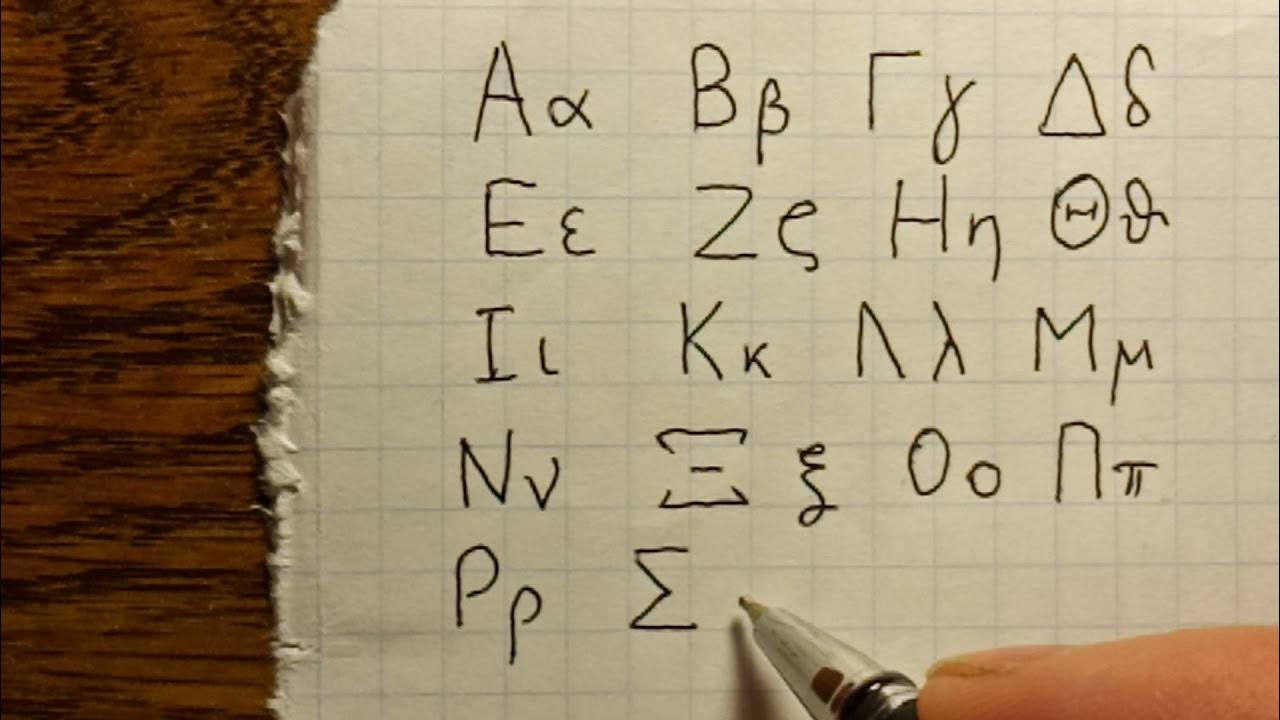 Αα Ββ Γγ Δδ
Εε Ζζ Ηη Θϑ
Ιι Κκ Λλ Μμ
Νν Ξξ Οο Ππ
Ρρ Σ